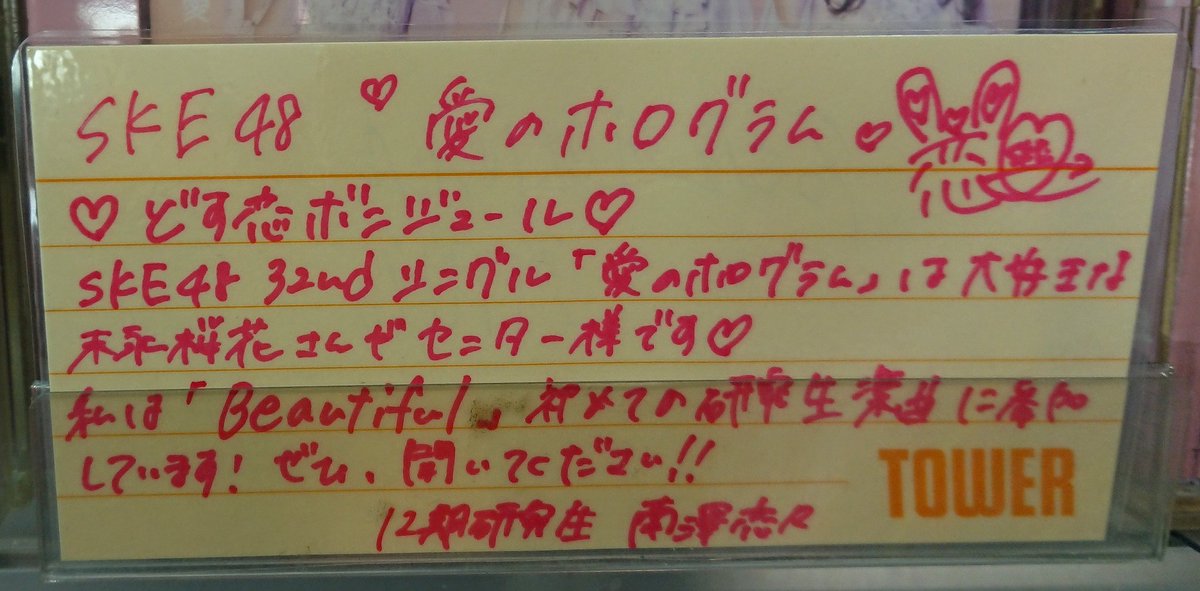 SKE48 ♡ 愛のホログラム ♡
恋
♡ どす恋ボンジュール♡
SKE48 32nd シングル「愛のホログラム」は大好きな
末永桜花さんがセンター様です♡
私は「Beautiful」初めての研究生楽曲に参加
しています！ぜひ、聞いてください!!
12期研究生 南澤恋々
TOWER